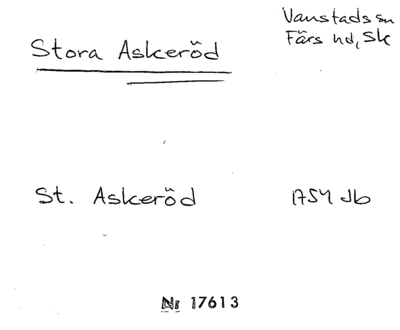 Vanstads sn
Färs hd, Sk
Stora Askeröd
St. Askeröd 1754 Jb
Nr 17613